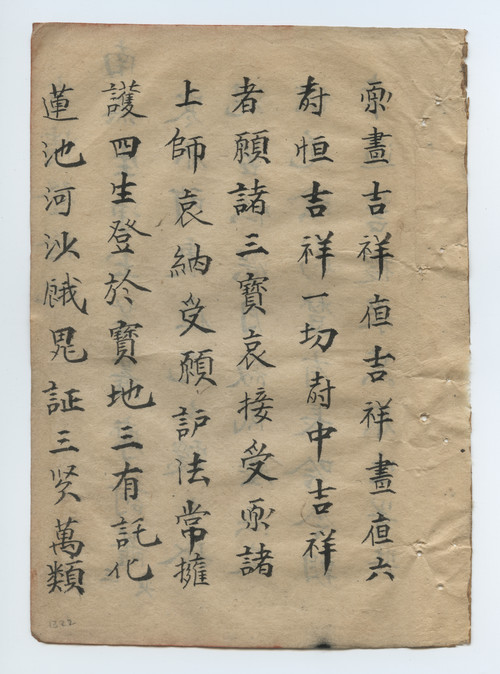 愿晝吉祥夜吉祥晝夜六
时恒吉祥一切时中吉祥
者願諸三寶哀接受愿諸
上師哀納受願护法常擁
護四生登於寶地三有託化
蓮池河沙餓鬼証三贤萬類